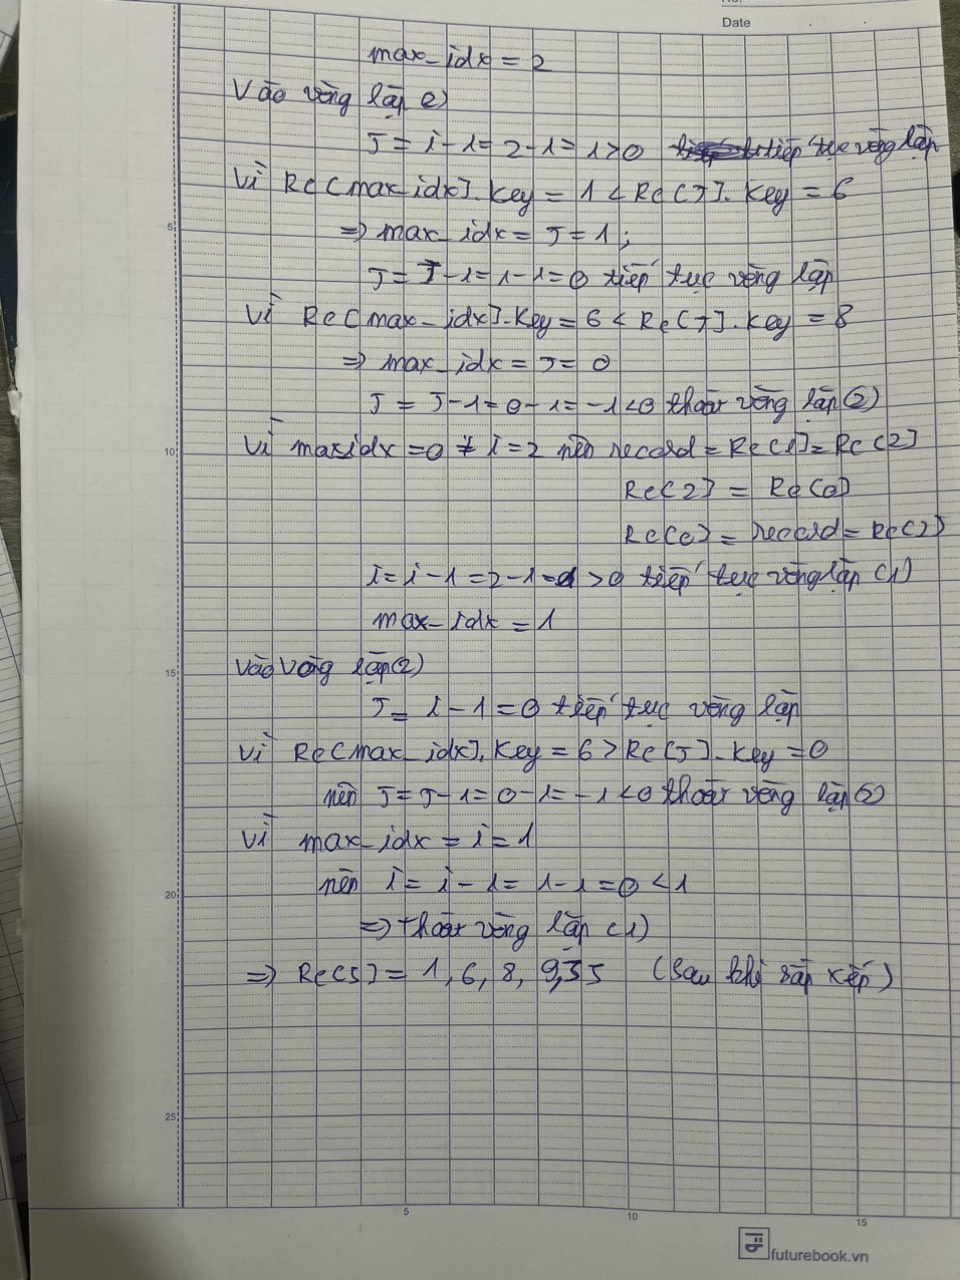 No.
Date
max_idx = 2
Vào vòng lặp 2)
J = i - 1 = 2 - 1 = 1 > 0 tiếp tục vòng lặp
Vì Re[max_idx].Key = 1 < Re[J].Key = 6
=> max_idx = J = 1;
J = J - 1 = 1 - 1 = 0 tiếp tục vòng lặp
Vì Re[max_idx].Key = 6 < Re[J].Key = 8
=> max_idx = J = 0
J = J - 1 = 0 - 1 = -1 < 0 thoát vòng lặp (2)
Vì maxidx = 0 ≠ i = 2 nên record = Re[i] = Re[2]
Re[2] = Re[0]
Re[0] = record = Re[2]
i = i - 1 = 2 - 1 = 1 > 0 tiếp tục vòng lặp (1)
max_idx = 1
Vào vòng lặp (2)
J = i - 1 = 0 tiếp tục vòng lặp
Vì Re[max_idx].Key = 6 > Re[J].Key = 0
nên J = J - 1 = 0 - 1 = -1 < 0 thoát vòng lặp (2)
Vì max_idx = i = 1
nên i = i - 1 = 1 - 1 = 0 < 1
=> thoát vòng lặp (1)
=> Re[5] = 1, 6, 8, 9, 35 (sau khi sắp xếp)
5
10
15
20
25
5
10
15
futurebook.vn